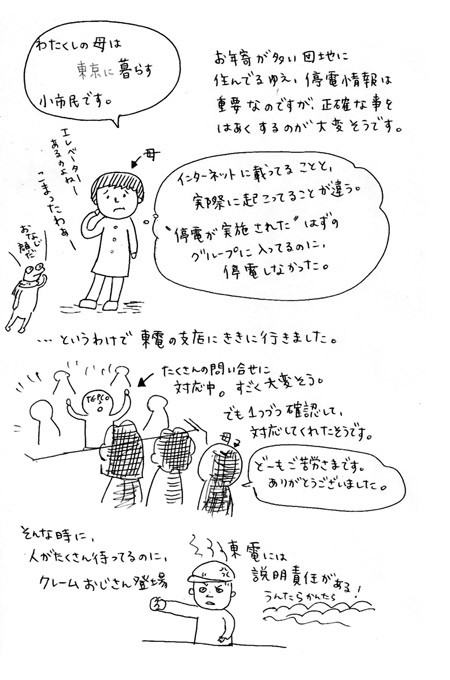 わたくしの母は
東京に暮らす
小市民です。
お年寄が多い団地に
住んでるゆえ、停電情報は
重要なのですが、正確な事を
はあくするのが大変そうです。
エレベーター
あるかよねー
こまったわぁー
母
おなじ
顔だ
インターネットに載ってることと、
実際に起こってることが違う。
"停電が実施された"はずの
グループに入ってるのに、
停電しなかった。
…というわけで東電の支店にききに行きました。
たくさんの問い合せに
対応中。すごく大変そう。
TEPCO
でも1つづつ確認して、
対応してくれたそうです。
母
どーもご苦労さまです。
ありがとうございました。
そんな時に、
人がたくさん待ってるのに、
クレームおじさん登場
東電には
説明責任がある!
うんたらかんたら